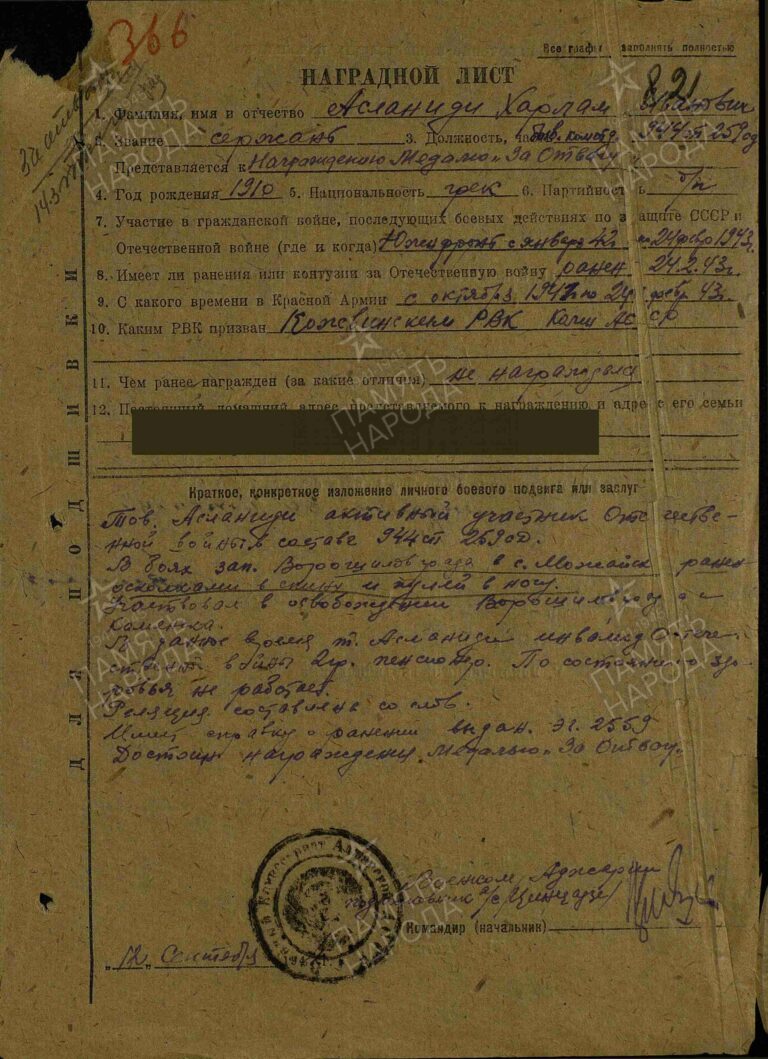 366
Все графы заполнять полностью
НАГРАДНОЙ ЛИСТ
821
1. Фамилия, имя и отчество Асланиди Харлам Иванович
2. Звание сержант 3. Должность, часть 944 сп 259 сд
Представляется к Награждению Медалью „За Отвагу“
4. Год рождения 1910 5. Национальность грек 6. Партийность б/п
7. Участие в гражданской войне, последующих боевых действиях по защите СССР и
Отечественной войне (где и когда) Южн фронт с января 42 по 24 февр 1943г.
8. Имеет ли ранения или контузии за Отечественную войну ранен 24.2.43г.
9. С какого времени в Красной Армии с октября 1941 по 24 февр. 43г.
10. Каким РВК призван Кожвинским РВК Коми АССР
11. Чем ранее награжден (за какие отличия) не награждался
12. Постоянный домашний адрес представляемого к награждению и адрес его семьи
ДЛЯ ПОДШИВКИ
Краткое, конкретное изложение личного боевого подвига или заслуг
Тов. Асланиди активный участник Отечестве-
нной войны в составе 944 сп 259 сд.
В боях зап. Ворошиловграда в с. Можайск ранен
осколками в спину и пулей в ногу.
Участвовал в освобождении Ворошиловграда и
Каменка.
В данное время т. Асланиди инвалид Отече-
ственной войны 2 гр. пенсионер. По состоянию здо-
ровья не работает.
Реляция составлена со слов.
Имеет справку о ранении выдан. эг. 2559
Достоин награждения Медалью „За Отвагу“
Военком Аджарии
подполковник а/с /Цинцадзе/
Командир (начальник)
„12“ Сентября
ПАМЯТЬ НАРОДА